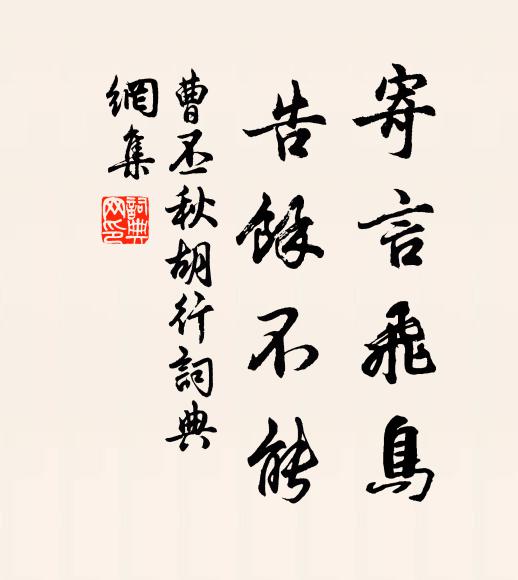 寄言飛鳥
告餘不能
曹丕秋胡行詞典
網集
詞典
网印